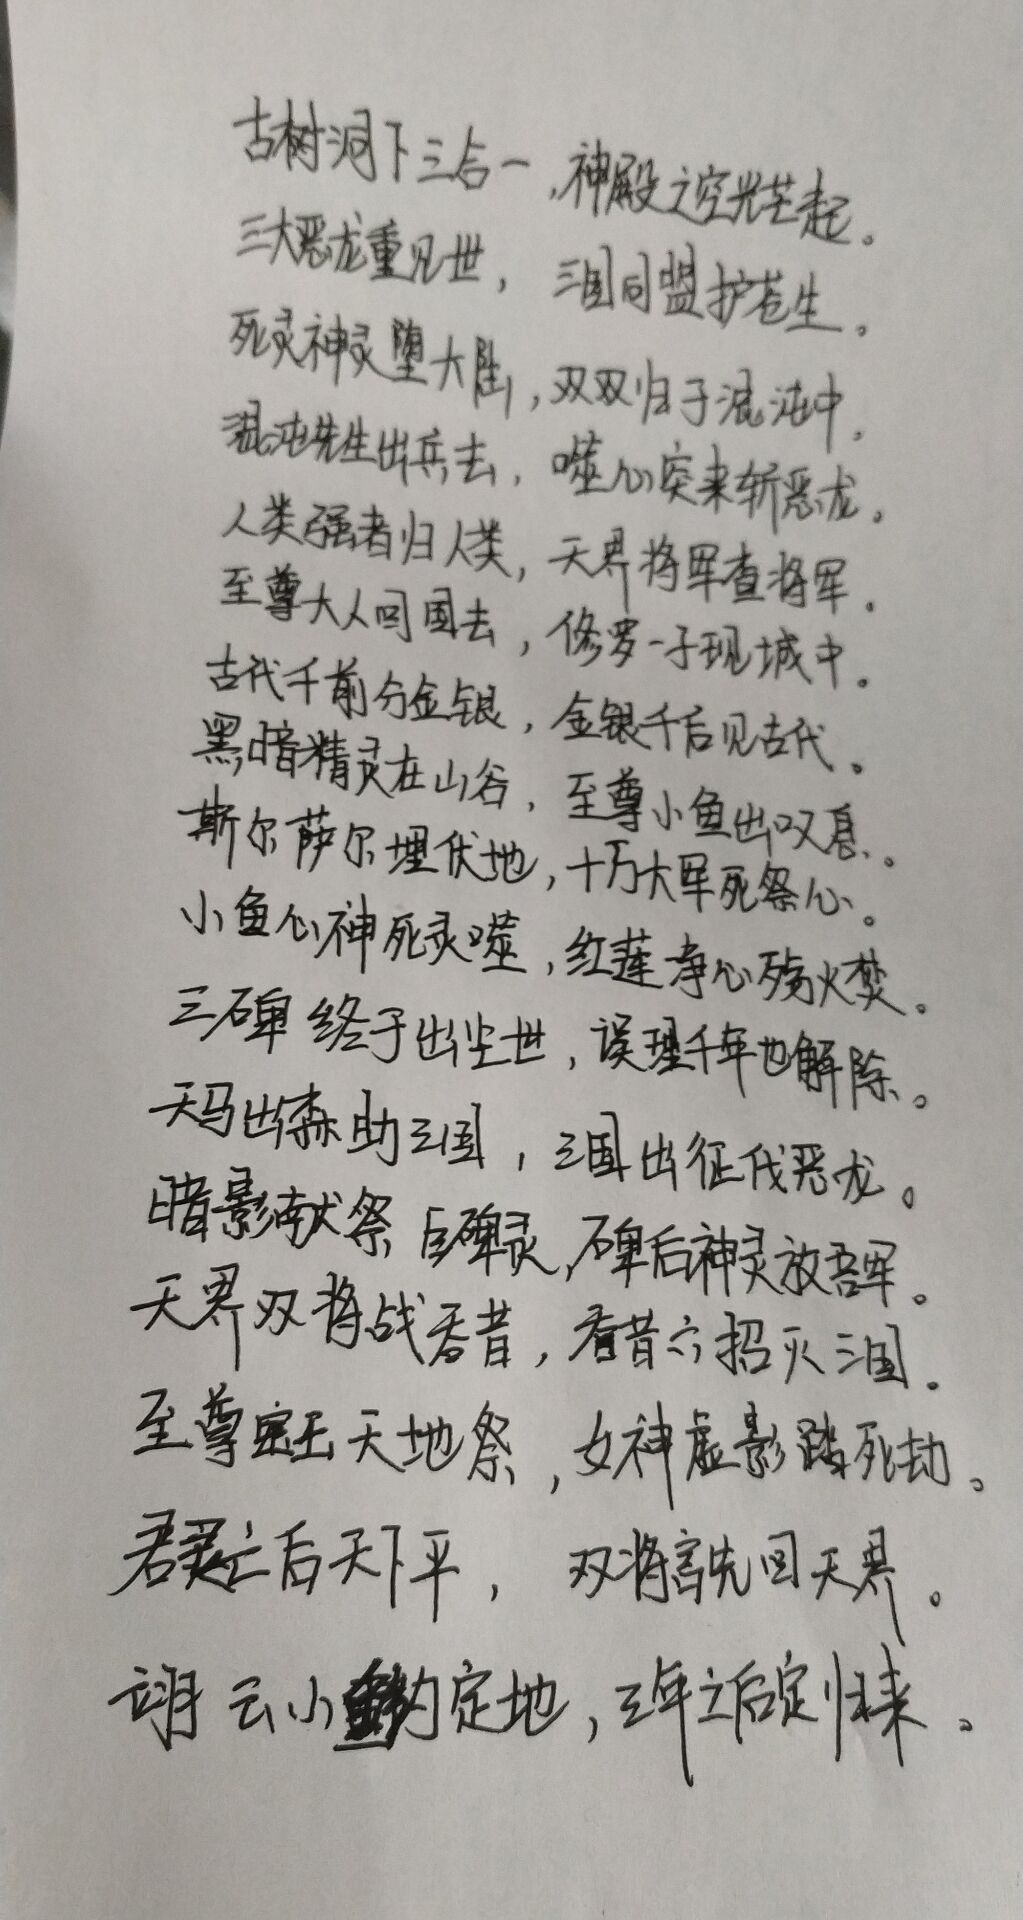 古树洞下三合一,神殿之空光芒起。
三大恶龙重见世,三国同盟护苍生。
死灵神灵堕大陆,双双归于混沌中。
混沌先生出兵去,噬心突来斩恶龙。
人类强者归人类,天界将军查将军。
至尊大人回国去,修罗一子现城中。
古代千前分金银,金银千后见古代。
黑暗精灵在山谷,至尊小鱼出叹息。
斯尔萨尔埋伏地,十万大军死祭心。
小鱼心神死灵噬,红莲净心殇火焚。
三碑终于出尘世,误埋千年也解除。
天马出森助三国,三国出征伐恶龙。
暗影献祭巨碑灵,碑后神灵放吾军。
天界双将战香昔,香昔六招灭三国。
至尊定王天地祭,女神虚影踏死劫。
君灵亡后天下平,双将言先回天界。
云小约定地,三年之后定归来。